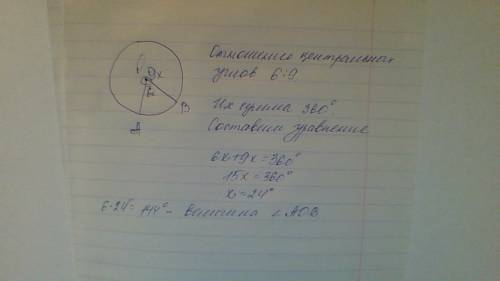 O
x
B
A
Отношение центральных
углов 6:9
Их сумма 360°
Составим уравнение
6x+9x=360°
15x=360°
x=24°
6·24=144° - величина ∠AOB